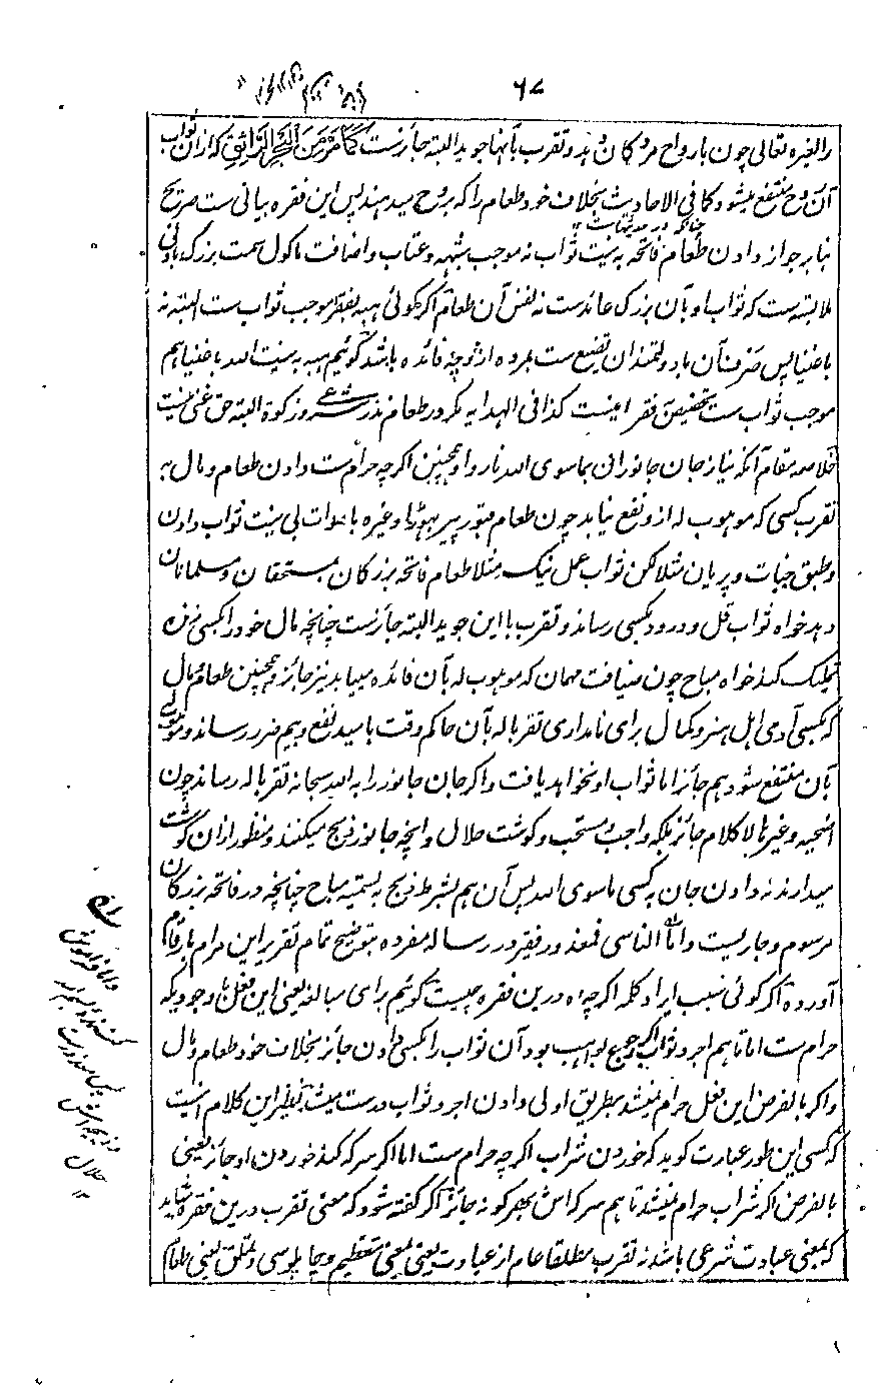 ۶۷
را لغیره تعالی چون بارواح مردگان دهد و تقرب بآنها جوید البته جائزست کما مر من البحر الرائق که ازان ثواب
آن روح منتفع میشود کما فی الاحادیث بخلاف خود طعام را که بروح میدهند پس این فقره بیانی ست صریح
بنابر جواز دادن طعام فاتحه به نیت ثواب نه موجب شبهه و عتاب و اضافت ماکول سمت بزرگ بادنی
ملابسته ست که ثواب او بآن بزرگ عائدست نه نفس آن طعام اگر گوئی هبه بفقرا موجب ثواب ست البته نه
باغنیا پس صرف آن بادولتمندان تضییع ست بمرده ازو چه فائده باشد گوئیم هبه به نیت الله باغنیا هم
موجب ثواب ست تخصیص فقرا نیست کذا فی الهدایه مگر در طعام نذر شرعی و زکوة البته حق غنی نیست
خلاصه مقام آنکه نیاز جان جانورانی بماسوی الله ناروا و همچنین اگرچه حرام ست دادن طعام و مال به
تقرب کسی که موهوب له ازو نفع نیابد چون طعام قبور پیر بهوڑا وغیره باموات بی نیت ثواب دادن
و طبق جنات و پریان مثلا لکن ثواب عمل نیک مثلا طعام فاتحه بزرگان بمستحقان و مسلمانان
دهد خواه ثواب قل و درود بکسی رساند و تقرب با این جوید البته جائزست چنانچه مال خود را بکسی زنده
تملیک کند خواه مباح چون ضیافت مهمان که موهوب له بآن فائده مییابد نیز جائز و همچنین طعام و مال
که بکسی آدمی اهل هنر و کمال برای نامداری تقربا له بآن حاکم وقت بامید نفع و بیم ضرر رساند و موهوب له
بآن منتفع شود هم جائز اما ثواب او نخواهد یافت و اگر جان جانور را به الله سبحانه تقربا له رساند چون
اضحیه و غیرها لا کلام جائز بلکه واجب و مستحب و گوشت حلال و آنچه جانور ذبح میکنند و منظور ازان گوشت
میدارند نه دادن جان به کسی ماسوی الله پس آن هم بشرط ذبح به تسمیه مباح چنانچه در فاتحه بزرگان
مرسوم و جاریست و اما الناسی فمعذور فقیر در رساله مفرده بتوضیح تمام تقریر این مرام بارقام
آورده اگر گوئی سبب ایراد کلمه اگرچه در این فقره چیست گوئیم برای مبالغه یعنی این فعل با وجودیکه
حرام ست اما تاهم اجر و ثواب اگر رجوع بواهب بود آن ثواب را بکسی دادن جائز بخلاف خود طعام و مال
و اگر بالفرض این فعل حرام نمیشد بطریق اولی دادن اجر و ثواب درست میشد نظیر این کلام اینست
که کسی این طور عبارت گوید که خوردن شراب اگرچه حرام ست اما اگر سرکه کند خوردن او جائز یعنی
بالفرض اگر شراب حرام نمیشد تاهم سرکه اش بهر گونه جائز اگر گفته شود که معنی تقرب درین فقره شاید
که بمعنی عبادت شرعی باشد نه تقرب مطلقا عام از عبادت یعنی بمعنی تعظیم و چاپلوسی و تملق یعنی طعام
چنانکه در حدیثهاست
حلال